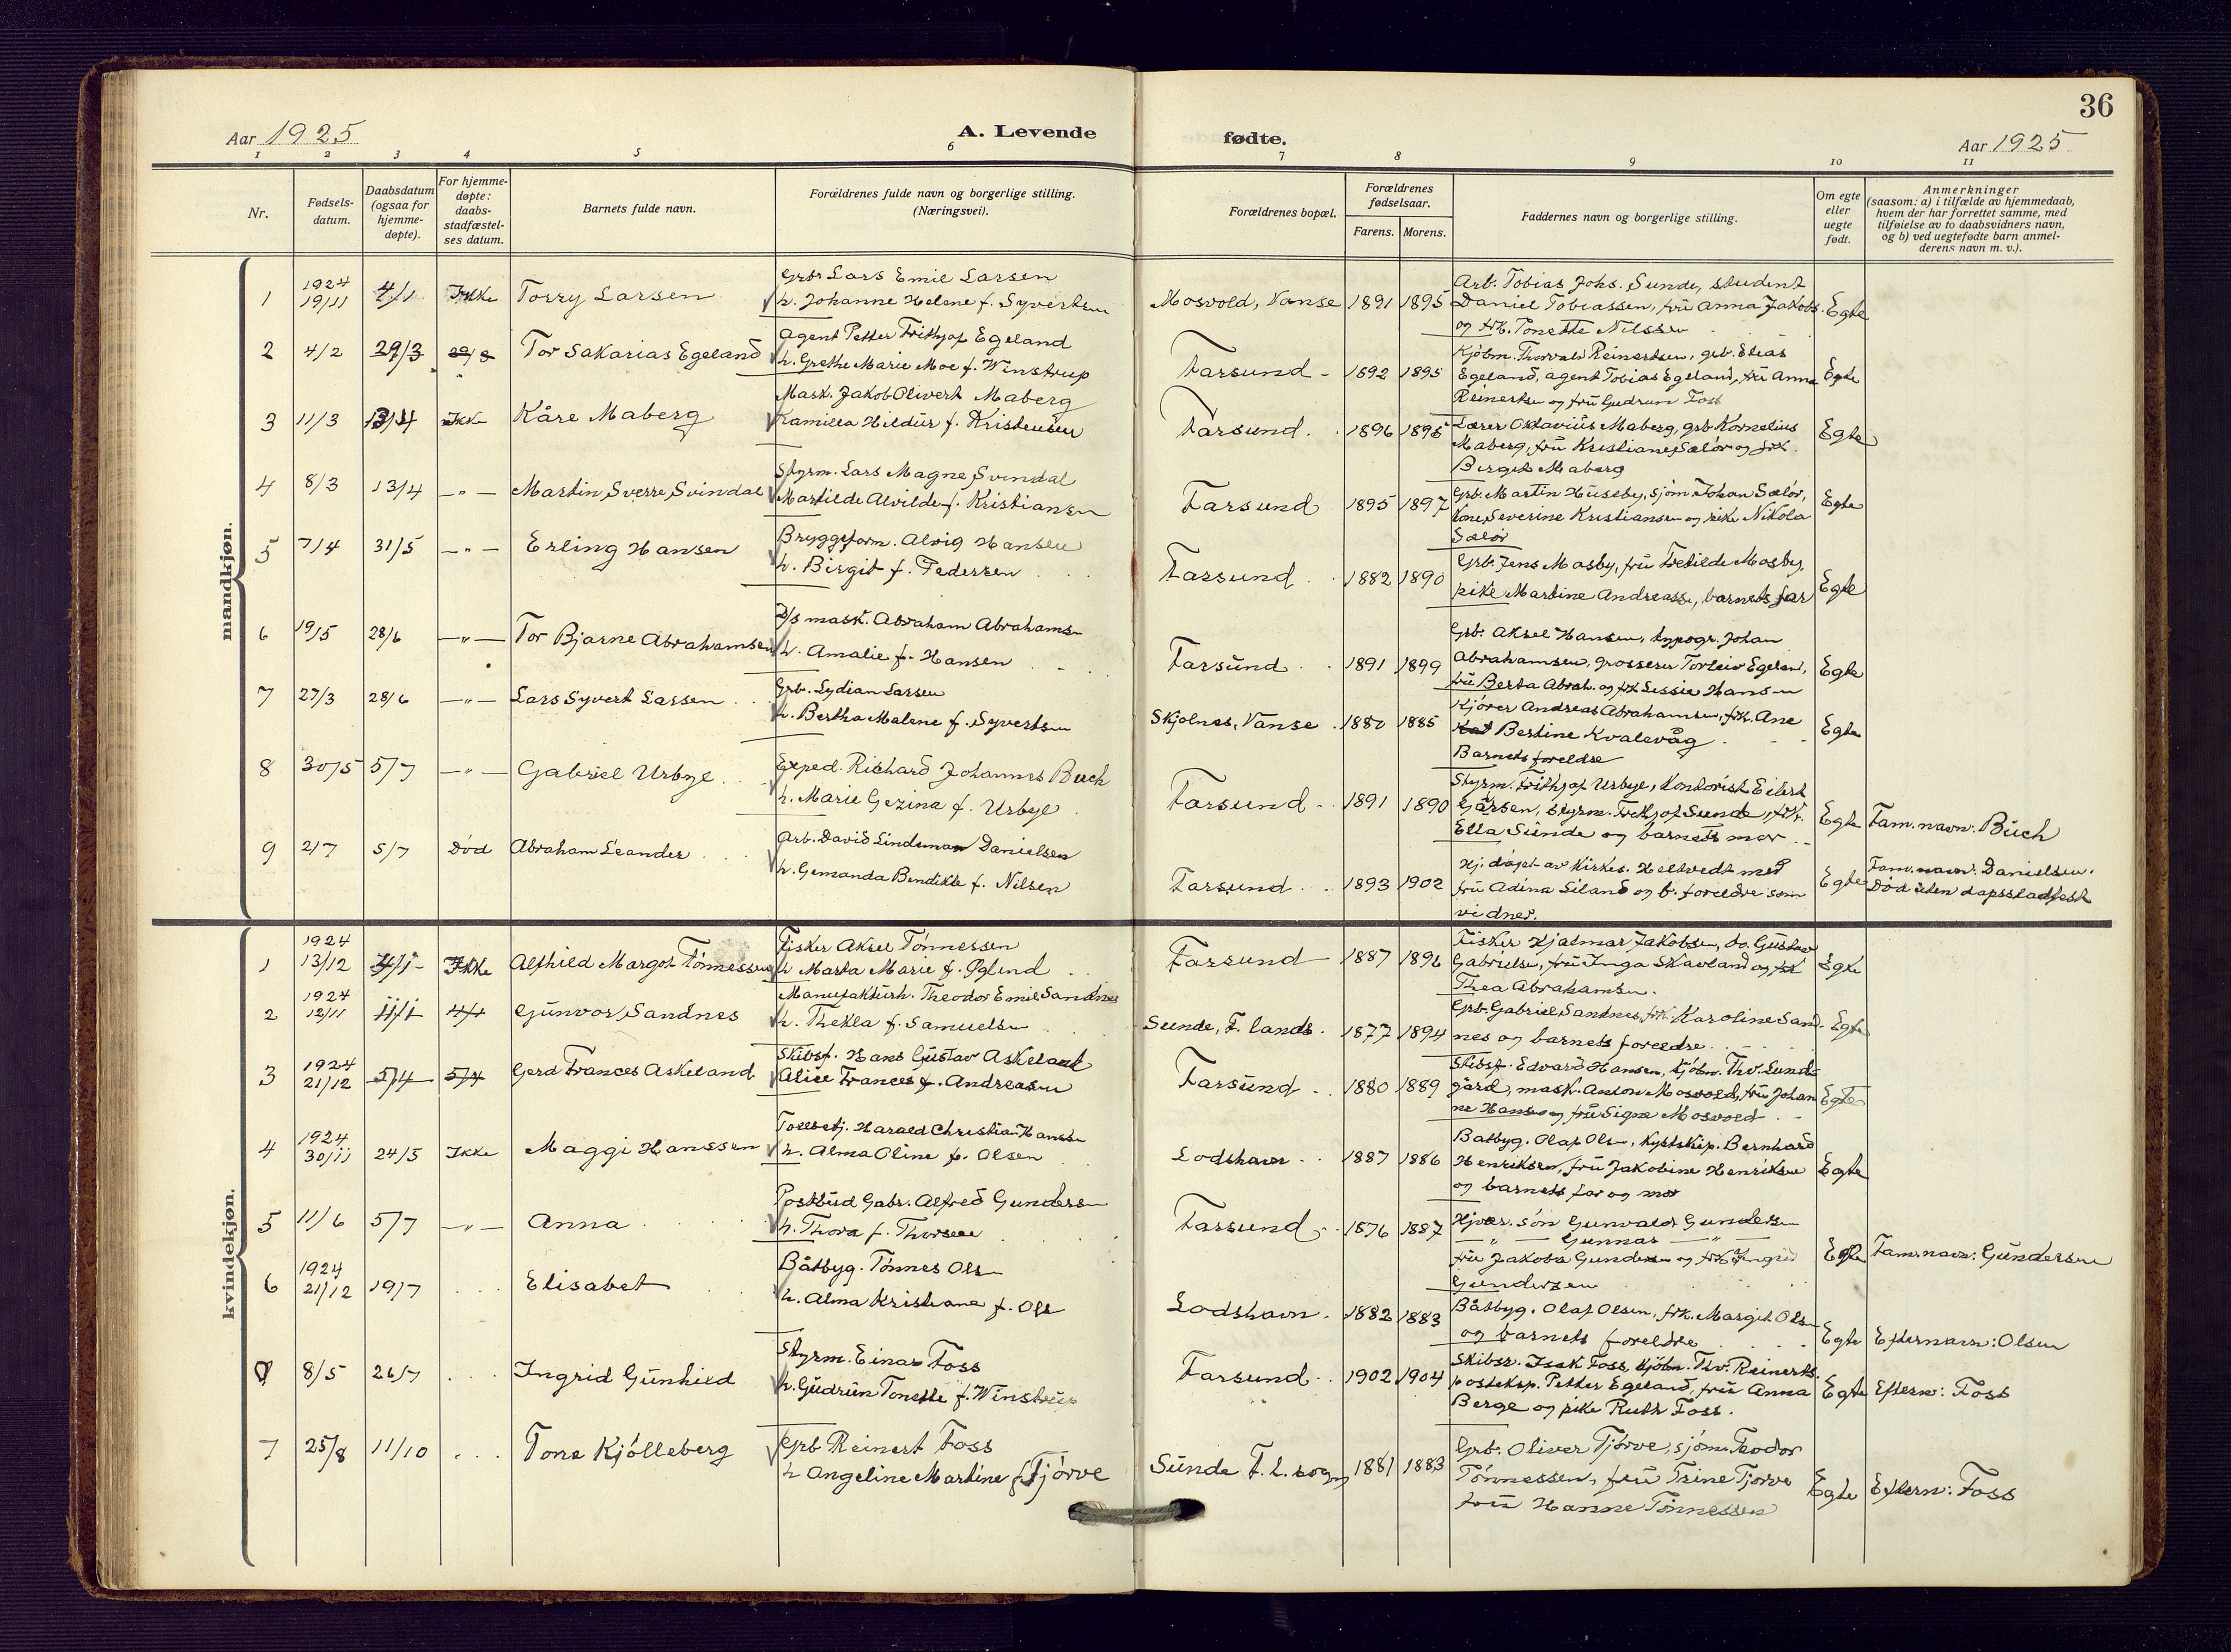 36
Aar 1925
A. Levende
fødte.
Aar 1925
1 2 3 4 5 6 7 8 9 10 11
Nr.
Fødsels-
datum.
Daabsdatum
(ogsaa for
hjemme-
døpte).
For hjemme-
døpte:
daabs-
stadfæstel-
ses datum.
Barnets fulde navn.
Forældrenes fulde navn og borgerlige stilling.
(Næringsvei).
Forældrenes bopæl.
Forældrenes
fødselsaar.
Farens. Morens.
Faddernes navn og borgerlige stilling.
Om egte
eller
uegte
født.
Anmerkninger
(saasom: a) i tilfælde av hjemmedaab,
hvem der har forrettet samme, med
tilføielse av to daabsvidners navn,
og b) ved uegtefødte barn anmel-
derens navn m. v.).
mandkjøn.
1 1924 19/11 4/1 Ikke Torry Larsen
Grb. Lars Emil Larsen
h. Johanne Helene f. Syvertsen
Mosvold, Vanse 1891 1895
Arb. Tobias Johs. Sunde, student
Daniel Tobiassen, frü Anna Jakobs.
og frk. Tonette Nilssen
Egte
2 4/2 29/3 29/3 Tor Sakarias Egeland
Agent Petter Frithjof Egeland
h. Grethe Marie Moe f. Winstrup
Farsund 1892 1895
Kjöbm. Thorvald Reinertsen, grb. Elias
Egeland, agent Tobias Egeland, frü Anna
Reinertsen og frü Gudrun Foss
Egte
3 11/3 13/4 Ikke Kåre Maberg
Mask. Jakob Olivert Maberg
Kamilla Hildür f. Kristensen
Farsund. 1896 1895
Lærer Oktavius Maberg, grb Kornelius
Maberg, frü Kristiane Sælör og frk.
Birgit Maberg
Egte
4 8/3 13/4 -"- Martin Sverre Svindal
Styrm. Lars Magne Svindal
Martilde Alvilde f. Kristiansen
Farsund 1895 1897
Grb. Martin Hüseby, sjöm Johan Sælör,
Kone Severine Kristiansen og pike Nikola
Sælör
Egte
5 7/4 31/5 -"- Erling Hansen
Bryggeform. Alvig Hansen
h. Birgit f. Pedersen
Farsund 1882 1890
Grb. Jens Mosby, frü Tretilde Mosby,
pike Martine Andreassen, barnets far
Egte
6 19/5 28/6 -"- Tor Bjarne Abrahamsen
D/s mask. Abraham Abrahamsen
h. Amalie f. Hansen
Farsünd 1891 1899
Grb. Aksel Hansen, typogr. Johan
Abrahamsen, grosserer Torleiv Egeland,
frü Berta Abrah. og frk Lessie Hansen
Egte
7 27/3 28/6 -"- Lars Syvert Larsen
Grb. Lydian Larsen
h. Bertha Malene f. Syvertsen
Skjolnes, Vanse 1880 1885
Kjörer Andreas Abrahamsen, frk. Ane
Kat Bertine Kvalevåg
Barnets foreldre
Egte
8 30/5 5/7 -"- Gabriel Urbye
Exped. Richard Johannes Buch
h. Marie Gezina f. Urbye
Farsund 1891 1890
Styrm. Frithjof Urbye, Kontorist Eilert
Garsen, styrm. Frithjof Sunde, frk.
Ella Sünde og barnets mor
Egte Fam.navn: Büch
9 2/7 5/7 Död Abraham Leander
Arb. David Lindeman Danielsen
h. Gemanda Bendikte f. Nilsen
Farsund 1893 1902
Hj. döpt av Kirkes. Heltvedt med
frü Adina Siland og b. foreldre som
vidner.
Egte Fam.navn: Danielsen.
Död uten dapsstadfest
kvindekjøn.
1 1924 13/12 4/1 Ikke Alfhild Margot Tönnessen
Fisker Aksel Tönnessen
h Marta Marie f. Öglend
Farsund 1887 1896
Fisker Hjalmar Jakobsen, do. Güstav
Gabrielsen, frü Inga Skavland og frk
Thea Abrahamsen.
Egte
2 1924 12/11 11/1 4/1 Günvor Sandnes
Manufakturh. Theodor Emil Sandnes
h. Thekla f. Samuelsen
Sunde, F. lands. 1877 1894
Grb. Gabriel Sandnes, frk. Karoline Sand-
nes og barnets foreldre
Egte
3 1924 21/12 5/4 5/4 Gerd Frances Askeland
Skibsf. Hans Güstav Askeland
Alice Frances f. Andreasen
Farsünd 1880 1889
Skibsf. Edvard Hansen, kjöbm. Thv. Lunde
gård, mask. Anton Mosvold, frü Johan
ne Hansen og frü Signe Mosvold
Egte
4 1924 30/11 24/5 Ikke Maggi Hanssen
Tollbetj. Harald Christian Hanssen
h. Alma Oline f. Olsen
Lodshavn 1887 1886
Båtbyg. Olaf Olsen, Kystskip. Bernhard
Henriksen, frü Jakobine Henriksen
og barnets far og mor
Egte
5 11/6 5/7 -"- Anna
Postbüd Gabr. Alfred Gundersen
h. Thora f. Thorsen
Farsund 1876 1887
Hjvær. sön Gunvald Gundersen
-"- Gunnar -"-
frü Jakoba Gundersen og frk Ingrid
Gundersen
Egte Fam.navn: Gündersen
6 1924 21/12 19/7 Elisabet
Båtbyg. Tönnes Olsen
h. Alma Kristiane f. Olsen
Lodshavn 1882 1883
Båtbyg. Olaf Olsen, frk. Margit Olsen
og barnets foreldre
Egte Efternavn: Olsen
8/5 26/7 Ingrid Günhild
Styrm. Einar Foss
h. Güdrün Tonette f. Winstrüp
Farsund 1902 1904
Skibsr. Isak Foss, Kjöbm. Thv. Reinerts.
posteksp. Petter Egeland, frü Anna
Berge og pike Ruth Foss.
Egte Eftern: Foss
7 25/8 11/10 Tone Kjölleberg
Grb Reinert Foss
h Angeline Martine f. Tjörve
Sünde F. L. sogn 1881 1883
Grb. Oliver Tjörve, sjöm. Teodor
Tönnessen, frü Trine Tjorve
frü Hanne Tönnessen
Egte Eftern: Foss